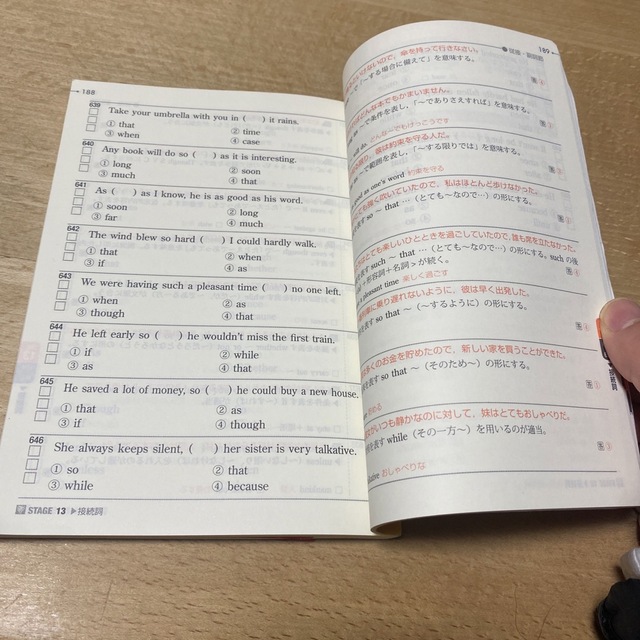 188
639
Take your umbrella with you in (　) it rains.
① that ② time
③ when ④ case
640
Any book will do so (　) as it is interesting.
① long ② soon
③ much ④ that
641
As (　) as I know, he is as good as his word.
① soon ② long
③ far ④ much
642
The wind blew so hard (　) I could hardly walk.
① that ② when
③ if ④ as
643
We were having such a pleasant time (　) no one left.
① when ② as
③ though ④ that
644
He left early so (　) he wouldn't miss the first train.
① if ② while
③ as ④ that
645
He saved a lot of money, so (　) he could buy a new house.
① that ② as
③ if ④ though
646
She always keeps silent, (　) her sister is very talkative.
① so ② that
③ while ④ because
STAGE 13 ▶接続詞
189
ないので、傘を持って行きなさい。
「～する場合に備えて」を意味する。
どんな本でもかまいません。
で条件を表し、「～でありさえすれば」を意味する。
do どんな～でもけっこうです
彼は約束を守る人だ。
で範囲を表し、「～する限りでは」を意味する。
good as one's word 約束を守る
吹いていたので、私はほとんど歩けなかった。
表す so ～ that …（とても～なので…）の形にする。
とても楽しいひとときを過ごしていたので、誰も席を立たなかった。
表す such ～ that …（とても～なので…）の形にする。such の後
形容詞＋名詞＞が続く。
pleasant time 楽しく過ごす
に乗り遅れないように、彼は早く出発した。
表す so that ～（～するように）の形にする。
多くのお金を貯めたので、新しい家を買うことができた。
表す so that ～（そのため～）の形にする。
貯める
いつも静かなのに対して、妹はとてもおしゃべりだ。
表す while（その一方～）を用いるのが適当。
おしゃべりな
接続詞